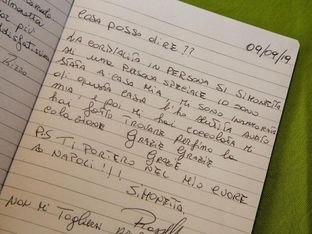 più
COSA POSSO DIRE??
09/09/19
LA CORDIALITÀ IN PERSONA SI SIMONETTA
SEI UNA PERSONA SPECIALE IO SONO
STATA A CASA MIA, MI SONO INNAMORATA
DI QUESTA CASA L'HO SENTITA SUBITO
MIA, E POI MI HAI COCCOLATA MI
HAI FATTO TROVARE PERFINO LA
COLAZIONE GRAZIE GRAZIE
GRAZIE
PS TI PORTERÒ NEL MIO CUORE
A NAPOLI!!!
SIMONETTA
NON MI TOGLIERE